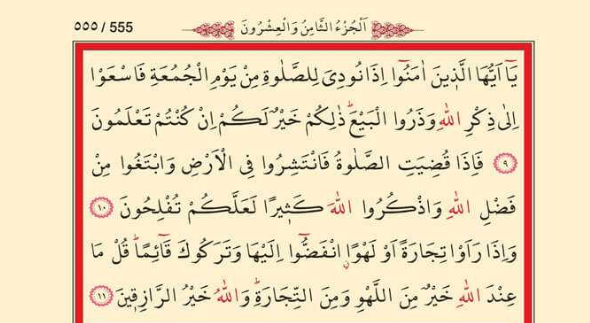 ٥٥٥ / 555 اَلْجُزْءُ الثَّامِنُ وَالْعِشْرُونَ
يَٓا اَيُّهَا الَّذ۪ينَ اٰمَنُٓوا اِذَا نُودِيَ لِلصَّلٰوةِ مِنْ يَوْمِ الْجُمُعَةِ فَاسْعَوْا
اِلٰى ذِكْرِ اللّٰهِ وَذَرُوا الْبَيْعَۜ ذٰلِكُمْ خَيْرٌ لَكُمْ اِنْ كُنْتُمْ تَعْلَمُونَ
﴿٩﴾ فَاِذَا قُضِيَتِ الصَّلٰوةُ فَانْتَشِرُوا فِي الْاَرْضِ وَابْتَغُوا مِنْ
فَضْلِ اللّٰهِ وَاذْكُرُوا اللّٰهَ كَث۪يرًا لَعَلَّكُمْ تُفْلِحُونَ ﴿١٠﴾
وَاِذَا رَاَوْا تِجَارَةً اَوْ لَهْوًاۨ انْفَضُّٓوا اِلَيْهَا وَتَرَكُوكَ قَٓائِمًاۜ قُلْ مَا
عِنْدَ اللّٰهِ خَيْرٌ مِنَ اللَّهْوِ وَمِنَ التِّجَارَةِۜ وَاللّٰهُ خَيْرُ الرَّازِق۪ينَ ﴿١١﴾